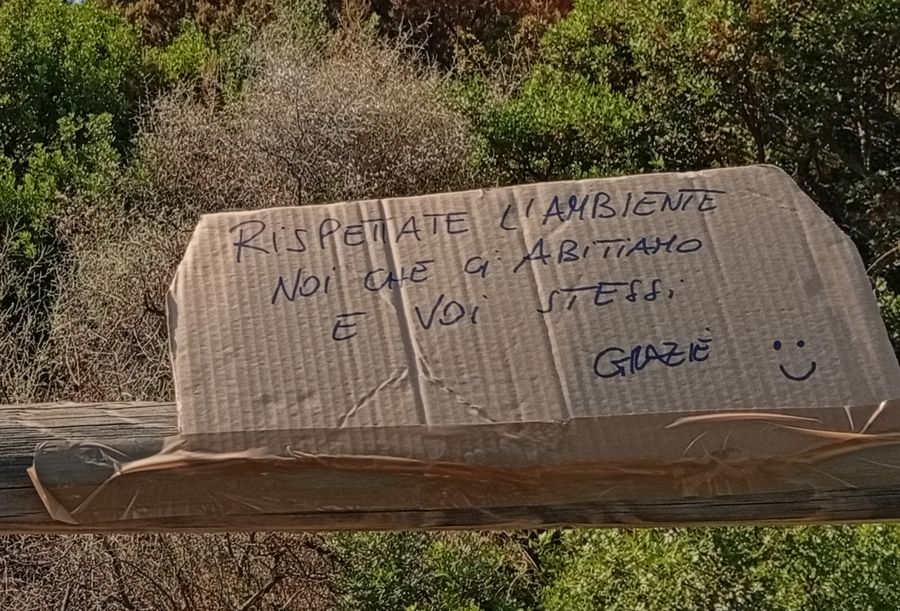 RiSPETTATE L'AMBIENTE
NOI CHE Ci ABITIAMO
E VOi STESSi
GRAZIE :)